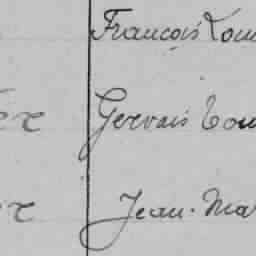 François Lou
Gervais Lou
Jean-Ma